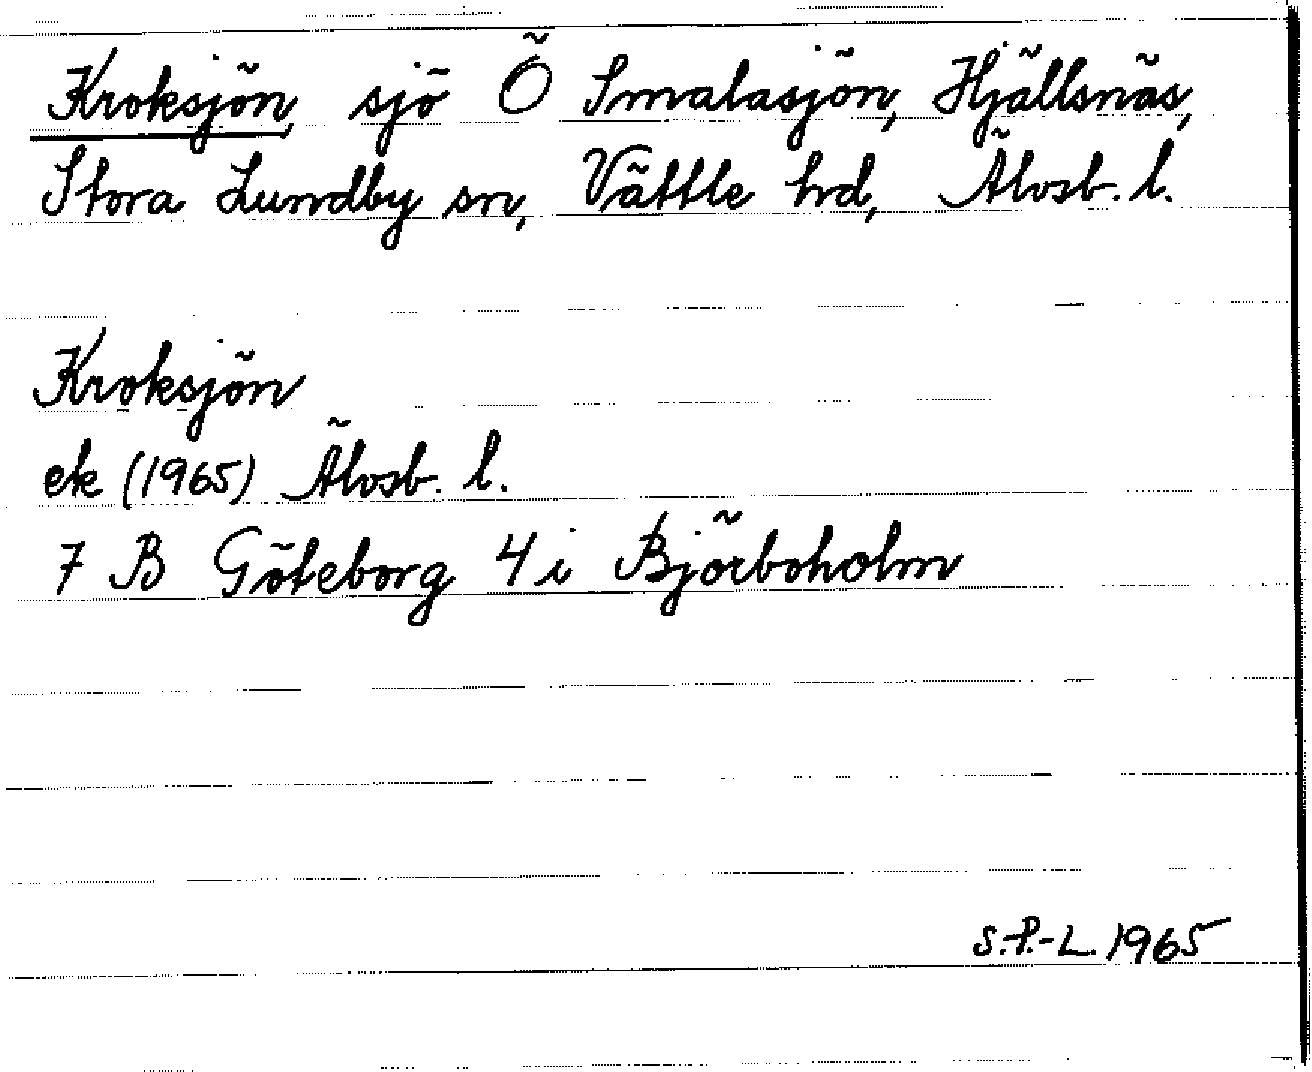 Kroksjön, sjö Ö Smalasjön, Hjällsnäs,
Stora Lundby sn, Vättle hd, Älvsb. l.
Kroksjön
ek (1965) Älvsb. l.
7 B Göteborg 4 i Björboholm
S.P.-L. 1965